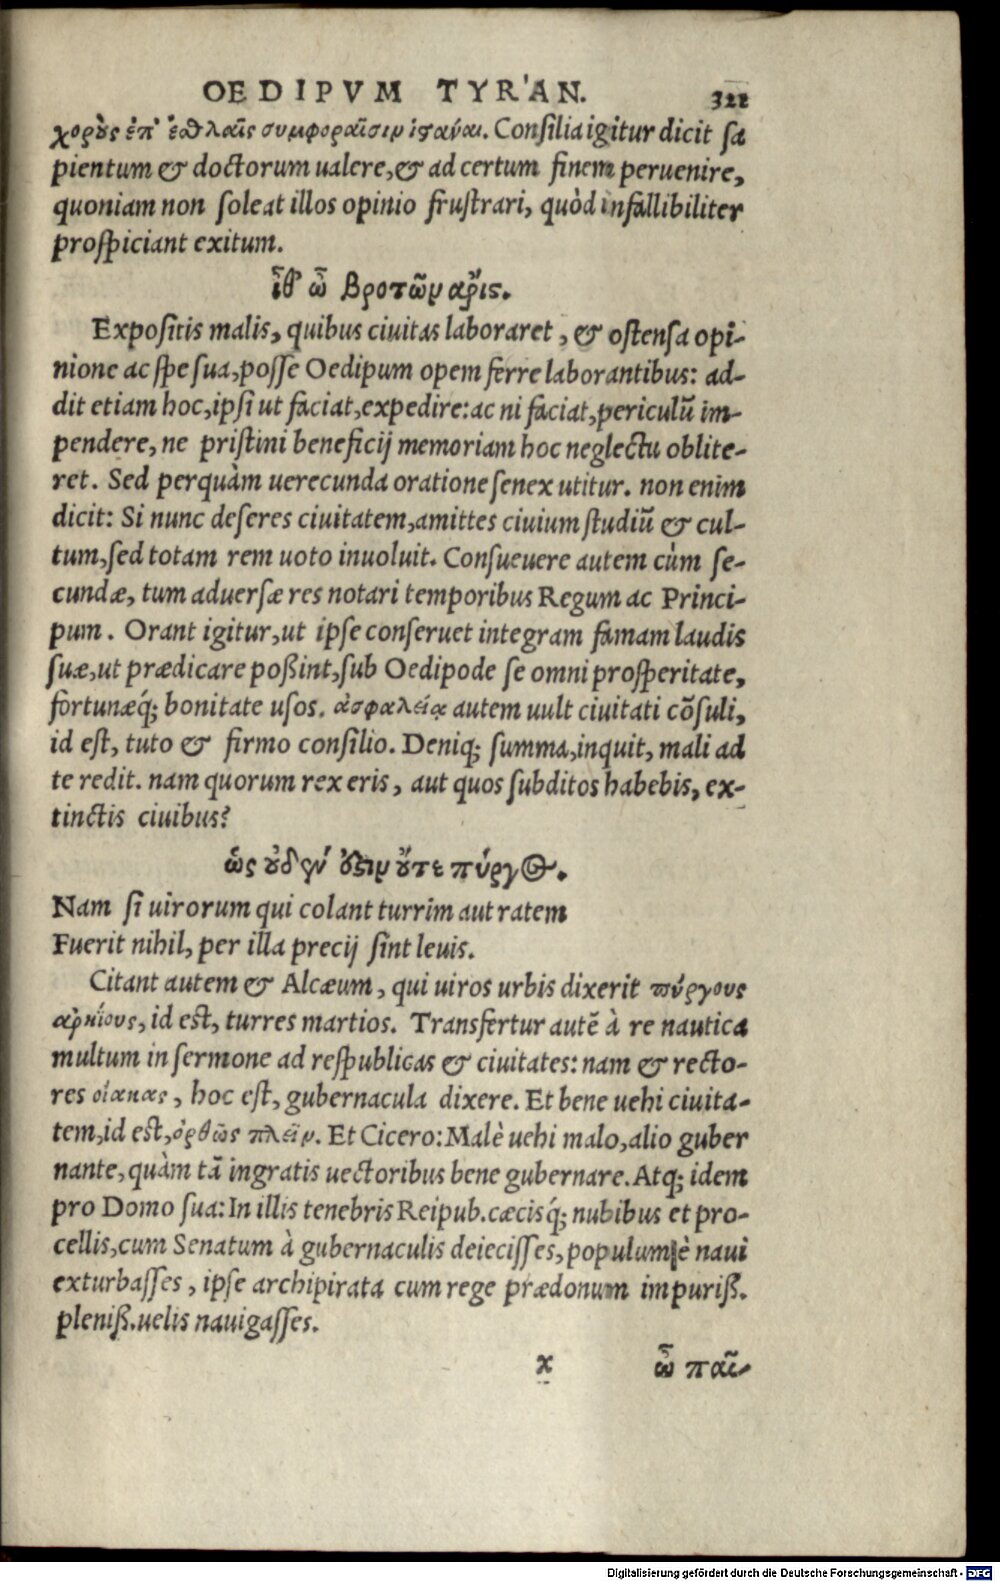 OEDIPVM TYRAN. 321
χοροὺς ἐπ' ἐσθλαῖς συμφοραῖσιν ἱστάναι. Consilia igitur dicit sa
pientum & doctorum ualere, & ad certum finem peruenire,
quoniam non soleat illos opinio frustrari, quòd infallibiliter
prospiciant exitum.
ἴθ' ὦ βροτῶν ἄρις.
Expositis malis, quibus ciuitas laboraret, & ostensa opi-
nione ac spe sua, posse Oedipum opem ferre laborantibus: ad-
dit etiam hoc, ipsi ut faciat, expedire: ac ni faciat, periculū im-
pendere, ne pristini beneficij memoriam hoc neglectu oblite-
ret. Sed perquàm uerecunda oratione senex utitur. non enim
dicit: Si nunc deseres ciuitatem, amittes ciuium studiū & cul-
tum, sed totam rem uoto inuoluit. Consueuere autem cùm se-
cundæ, tum aduersæ res notari temporibus Regum ac Princi-
pum. Orant igitur, ut ipse conseruet integram famam laudis
suæ, ut prædicare poßint, sub Oedipode se omni prosperitate,
fortunæq́; bonitate usos. ἀσφαλείᾳ autem uult ciuitati cōsuli,
id est, tuto & firmo consilio. Deniq; summa, inquit, mali ad
te redit. nam quorum rex eris, aut quos subditos habebis, ex-
tinctis ciuibus?
ὡς οὐδέν ὄξιν οὔτε πύργος.
Nam si uirorum qui colant turrim aut ratem
Fuerit nihil, per illa precij sint leuis.
Citant autem & Alcæum, qui uiros urbis dixerit πύργους
ἀρηΐους, id est, turres martios. Transfertur autē à re nautica
multum in sermone ad respublicas & ciuitates: nam & recto-
res οἴακας, hoc est, gubernacula dixere. Et bene uehi ciuita-
tem, id est, ὀρθῶς πλεῖν. Et Cicero: Malè uehi malo, alio guber
nante, quàm tā ingratis uectoribus bene gubernare. Atq; idem
pro Domo sua: In illis tenebris Reipub. cæcisq́; nubibus et pro-
cellis, cum Senatum à gubernaculis deiecisses, populum è naui
exturbasses, ipse archipirata cum rege prædonum impuriß.
pleniß. uelis nauigasses.
x ὦ παῖ-
Digitalisierung gefördert durch die Deutsche Forschungsgemeinschaft - DFG